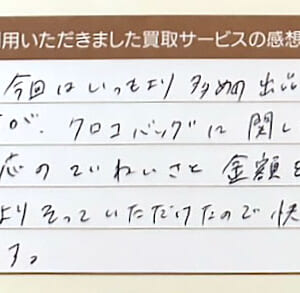 用いただきました買取サービスの感想
今回はいつもより多めの出品
が、クロコバッグに関し
応のていねいさと金額を
よりそっていただけたので快
す。